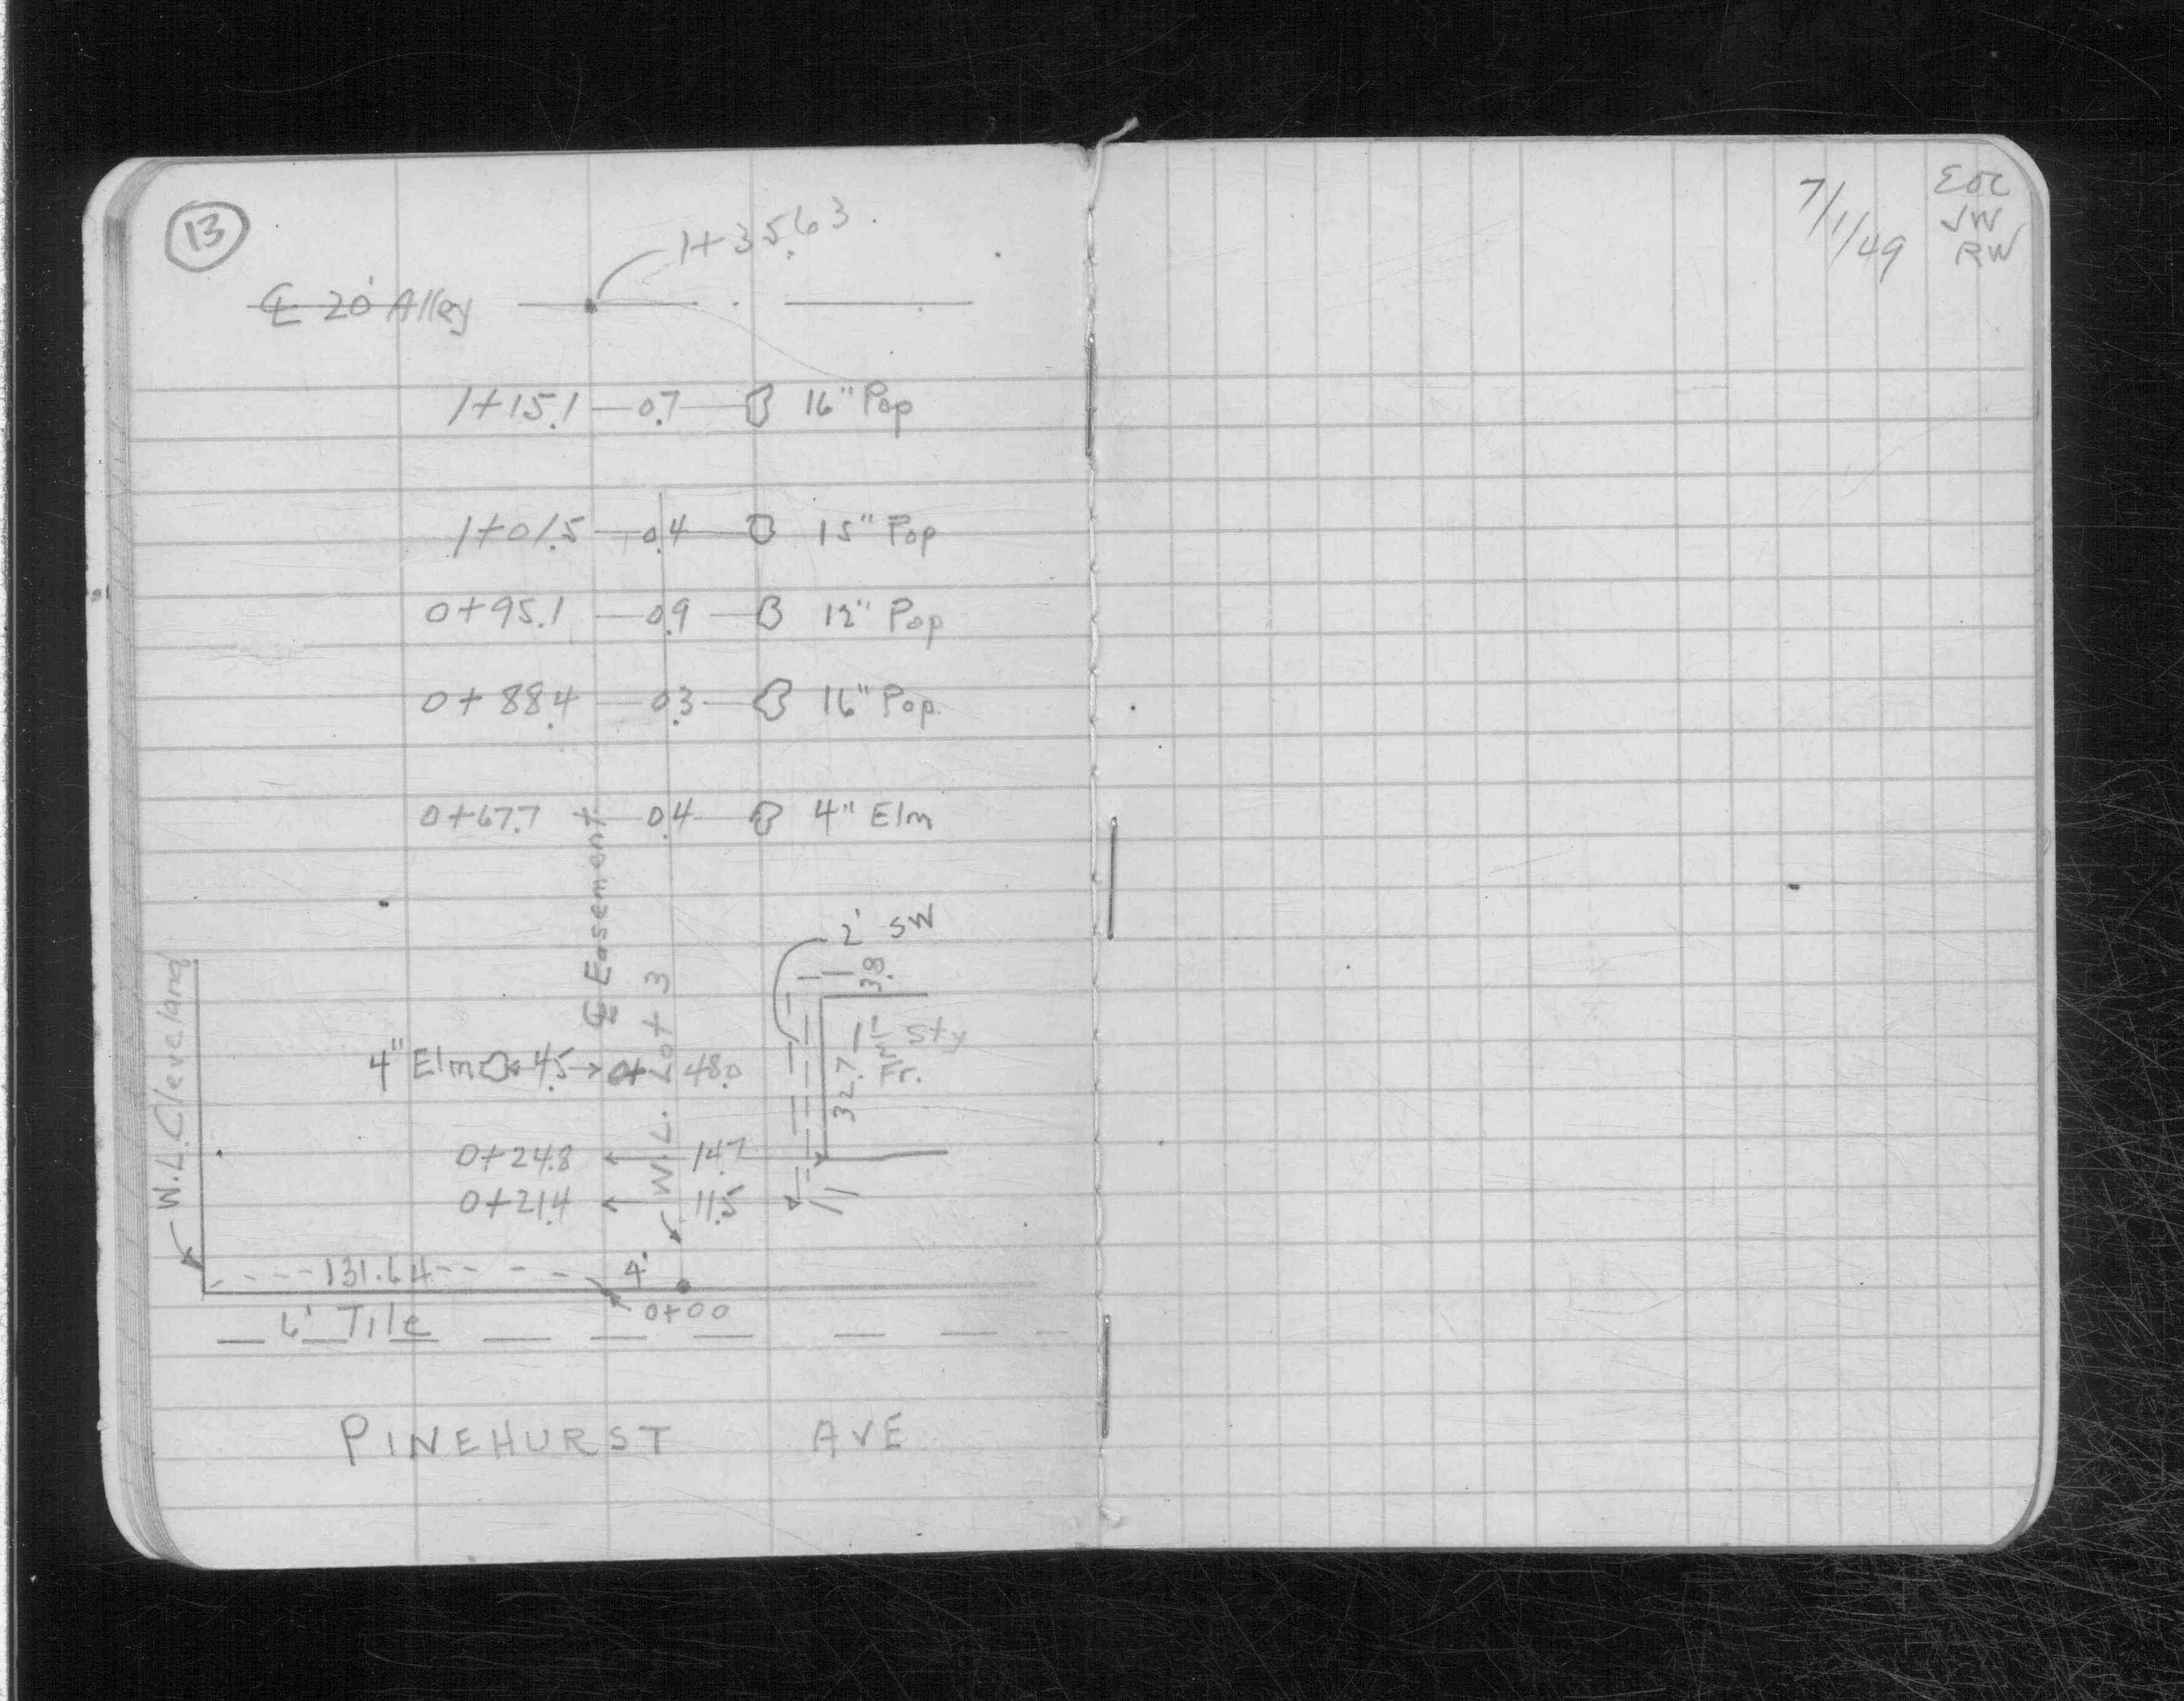 13
1+35.63
℄ 20' Alley
1+15.1 0.7 16" Pop
1+01.5 0.4 15" Pop
0+95.1 0.9 12" Pop
0+88.4 0.3 16" Pop.
0+67.7 0.4 4" Elm
℄ Easement
W.L. Lot 3
2' SW
3.8
1½ Sty
Fr.
32.7
4" Elm 4.5 0+48.0
0+24.8 14.7
0+21.4 11.5
W.L. Cleveland
131.64 4'
0+00
6' Tile
PINEHURST AVE
7/1/49
EOC
JW
RW